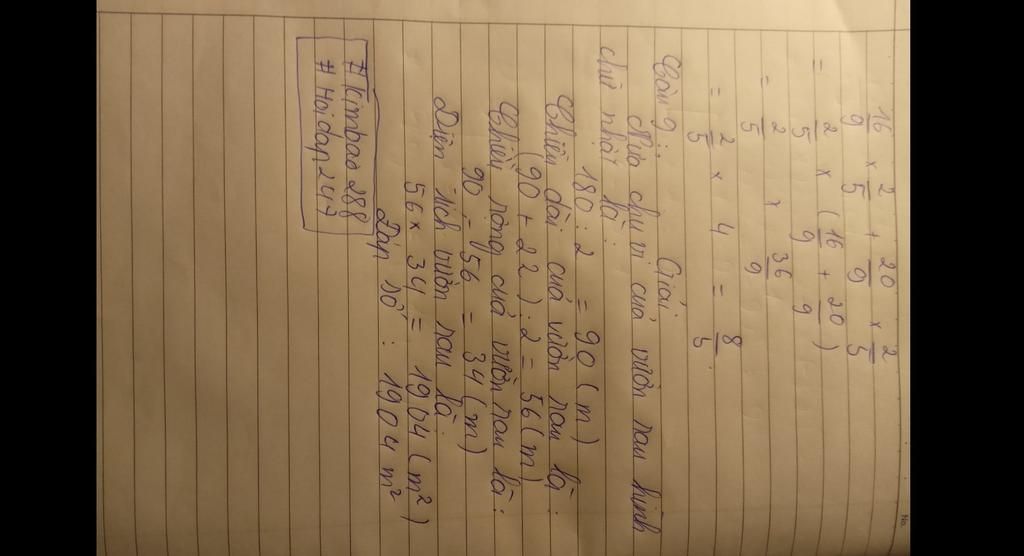 No.
16/9 × 2/5 + 20/9 × 2/5
= 2/5 × (16/9 + 20/9)
= 2/5 × 36/9
= 2/5 × 4 = 8/5.
Câu 9: Giải
Nửa chu vi của vườn rau hình
chữ nhật là:
180 : 2 = 90 (m)
Chiều dài của vườn rau là:
(90 + 22) : 2 = 56 (m)
Chiều rộng của vườn rau là:
90 - 56 = 34 (m)
Diện tích vườn rau là:
56 × 34 = 1904 (m²)
Đáp số: 1904 m²
# Kimbao288
# Hoidap247